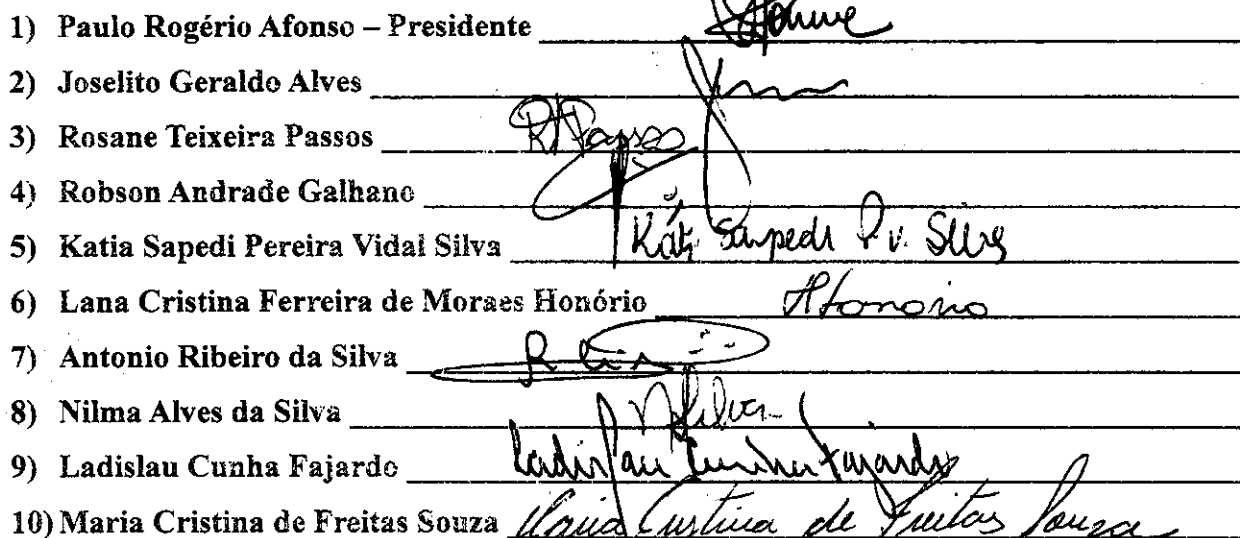 1) Paulo Rogério Afonso – Presidente
2) Joselito Geraldo Alves
3) Rosane Teixeira Passos RTPassos
4) Robson Andrade Galhano
5) Katia Sapedi Pereira Vidal Silva Káti Sapedi P. V. Silva
6) Lana Cristina Ferreira de Moraes Honório Honorio
7) Antonio Ribeiro da Silva
8) Nilma Alves da Silva NSilva
9) Ladislau Cunha Fajardo Ladislau Cunha Fajardo
10) Maria Cristina de Freitas Souza Maria Cristina de Freitas Souza